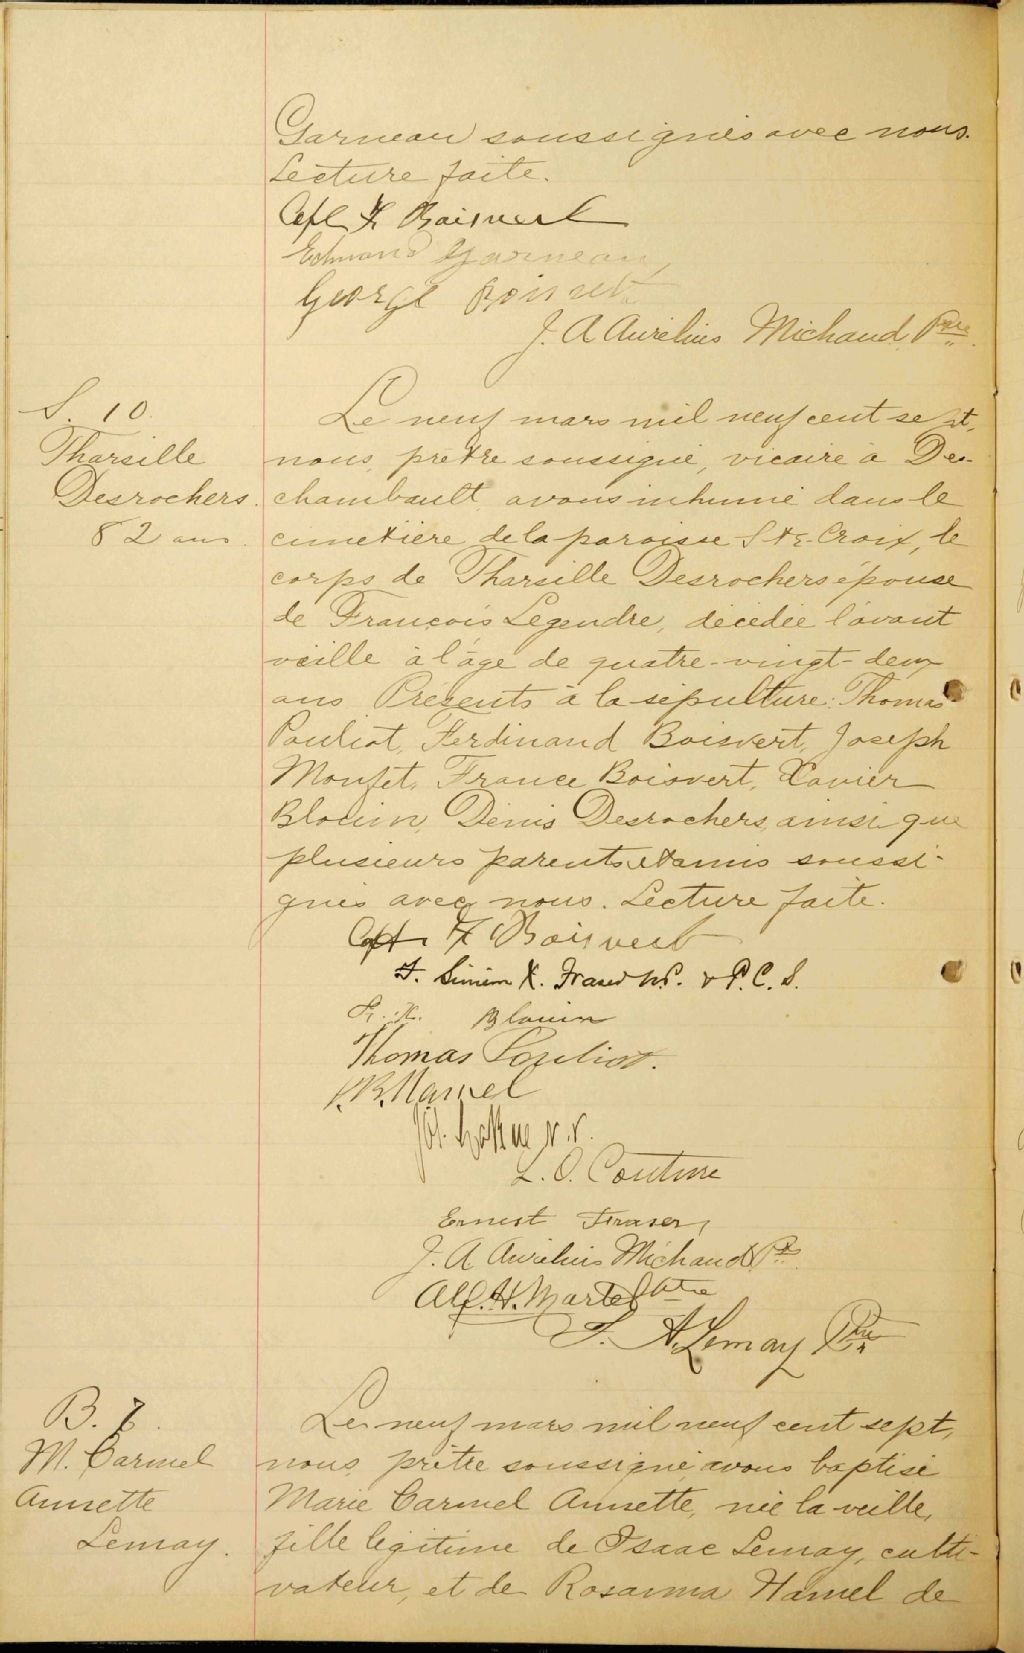 Garneau soussignés avec nous.
Lecture faite.
Capt F. Boisvert
Edmond Garneau
George Boisvert
J. A Aurélius Michaud Ptre
S. 10
Tharsille
Desrochers.
82 ans.
Le neuf mars mil neuf cent sept,
nous, prêtre soussigné, vicaire à Des-
chambault, avons inhumé dans le
cimetière de la paroisse Ste-Croix, le
corps de Tharsille Desrochers épouse
de François Legendre, décédée l'avant
veille à l'âge de quatre-vingt-deux
ans Présents à la sépulture: Thomas
Pouliot, Ferdinand Boisvert, Joseph
Monfet, France Boisvert, Xavier
Blouin, Denis Desrochers, ainsi que
plusieurs parents et amis soussi-
gnés avec nous. Lecture faite.
Capt F Boisvert
F. Siméon X. Fraser N.P. & P.C.S.
Fr. X. Blouin
Thomas Pouliot.
Hamel
Jos.
L. O. Couture
Ernest Fraser,
J. A Aurélius Michaud Ptre
Alf. H. Martel Ptre
A. Lemay Ptre
B. 7.
M. Carmel
Annette
Lemay.
Le neuf mars mil neuf cent sept,
nous prêtre soussigné, avons baptisé
Marie Carmel Annette, née la veille,
fille légitime de Isaac Lemay, culti-
vateur, et de Rosanna Hamel de